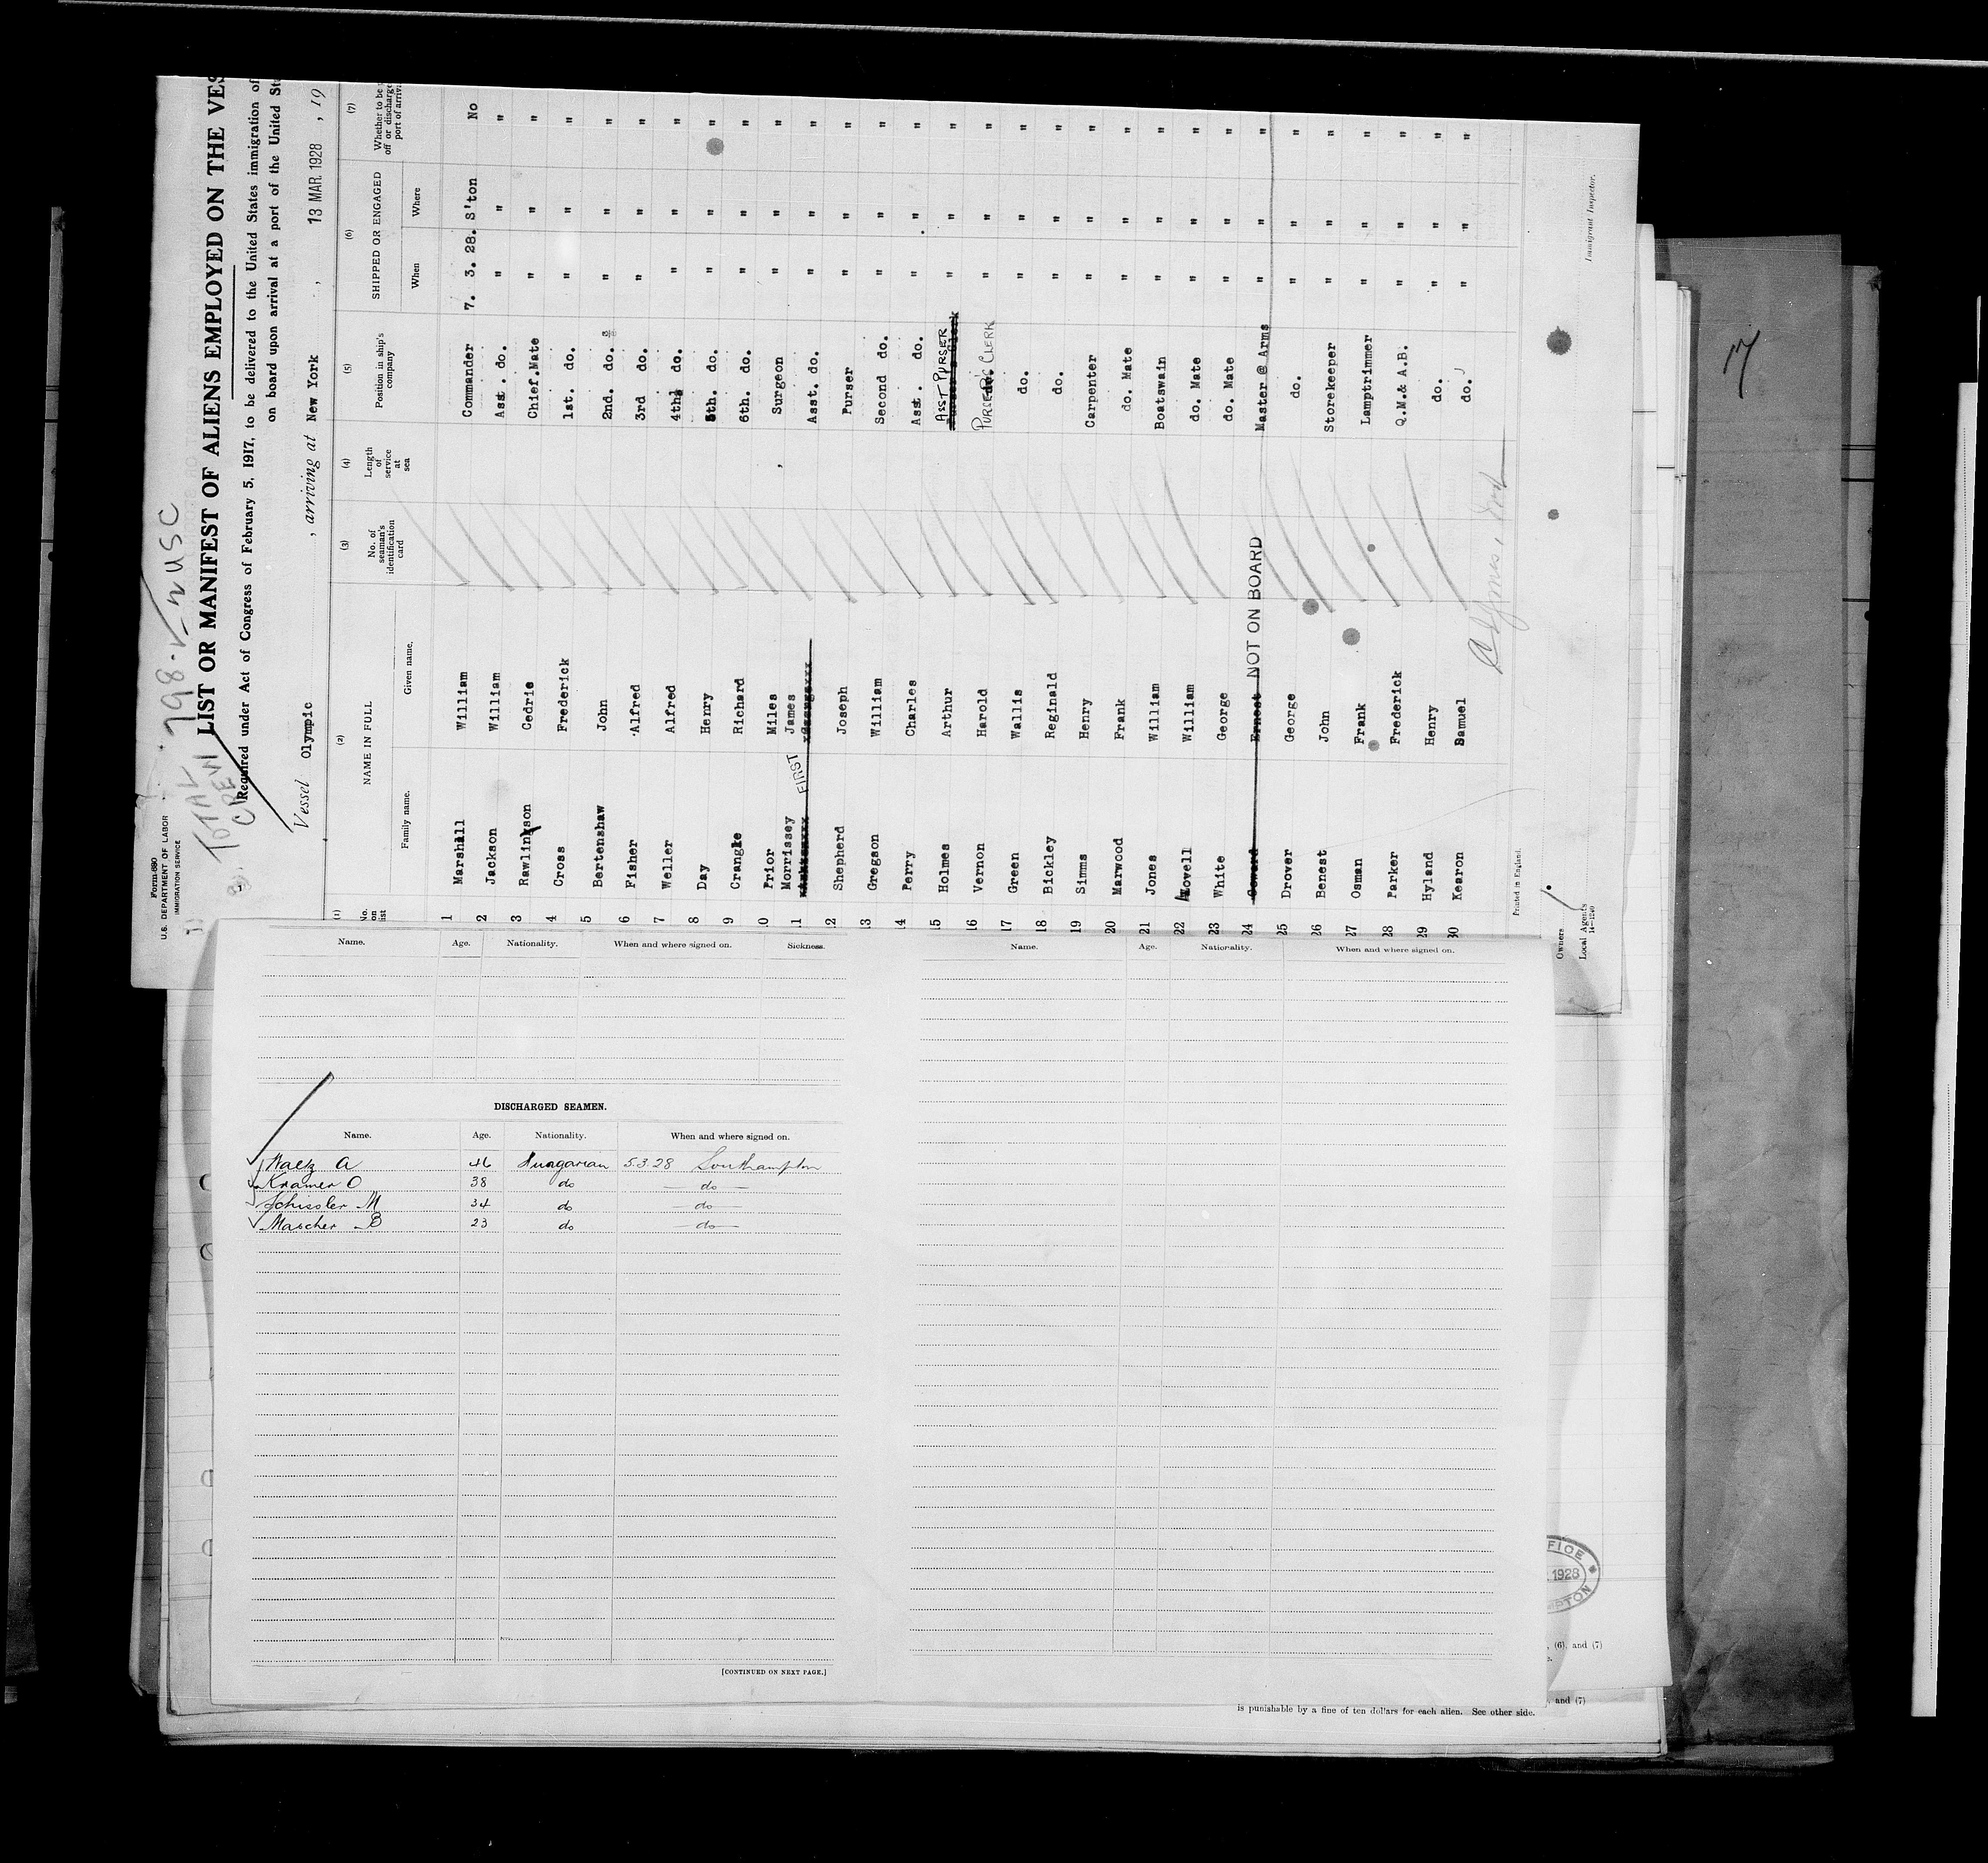 Form 680
U.S. DEPARTMENT OF LABOR
IMMIGRATION SERVICE
TOTAL CREW
798 USC
LIST OR MANIFEST OF ALIENS EMPLOYED ON THE VES
Required under Act of Congress of February 5, 1917, to be delivered to the United States immigration of
on board upon arrival at a port of the United St
Vessel Olympic , arriving at New York , 13 MAR. 1928 , 19
(1) (2) (3) (4) (5) (6) (7)
No. on list NAME IN FULL No. of seaman's identification card Length of service at sea Position in ship's company SHIPPED OR ENGAGED Whether to be off or discharge port of arriva
Family name. Given name. When Where
1 Marshall William Commander 7. 3. 28. S'ton No
2 Jackson William Asst. do. " " "
3 Rawlinson Cedric Chief.Mate " " "
4 Cross Frederick 1st. do. " " "
5 Bertenshaw John 2nd. do. " " "
6 Fisher Alfred 3rd do. " " "
7 Weller Alfred 4th do. " " "
8 Day Henry 5th. do. " " "
9 Crangle Richard 6th. do. " " "
10 Prior Miles Surgeon " " "
Morrissey James
11 FIRST Asst. do. " " "
12 Shepherd Joseph Purser " " "
13 Gregson William Second do. " " "
14 Perry Charles Asst. do. " " "
15 Holmes Arthur ASST PURSER " " "
16 Vernon Harold PURSERS CLERK " " "
17 Green Wallis do. " " "
18 Bickley Reginald do. " " "
19 Simms Henry Carpenter " " "
20 Marwood Frank do. Mate " " "
21 Jones William Boatswain " " "
22 Lovell William do. Mate " " "
23 White George do. Mate " " "
24 Ernest NOT ON BOARD Master @ Arms " " "
25 Drover George do. " " "
26 Benest John Storekeeper " " "
27 Osman Frank Lamptrimmer " " "
28 Parker Frederick Q.M.& A.B. " " "
29 Hyland Henry do. " " "
30 Kearon Samuel do. " " "
Printed in England.
Owners
Local Agents
14—1240
Immigrant Inspector.
17
Name. Age. Nationality. When and where signed on. Sickness.
DISCHARGED SEAMEN.
Name. Age. Nationality. When and where signed on.
Waltz A 46 Hungarian 5.3.28 Southampton
Kramer O 38 do do
Schissler M 34 do do
Mascher B 23 do do
[CONTINUED ON NEXT PAGE.]
Name. Age. Nationality. When and where signed on.
1928
, (6), and (7)
, and (7)
is punishable by a fine of ten dollars for each alien. See other side.